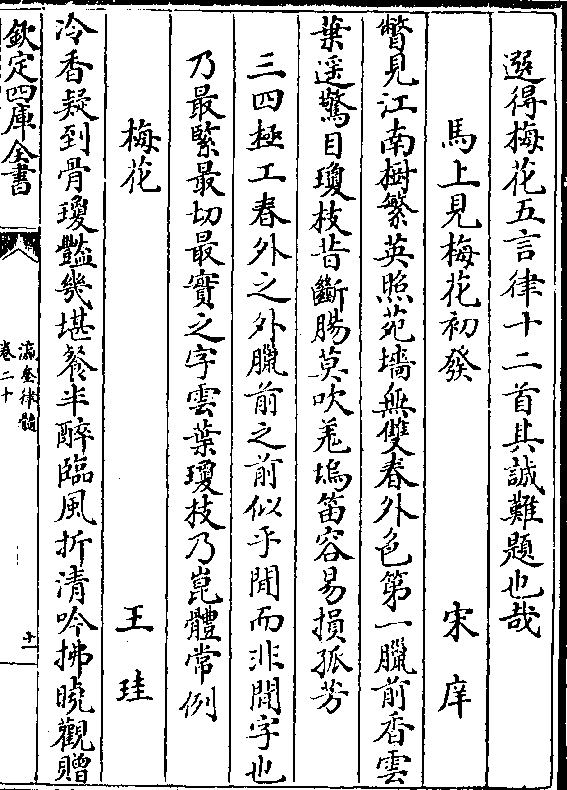 選得梅花五言律十二首其誠難題也哉
馬上見梅花初發 宋庠
瞥見江南樹繁英照苑墻無雙春外色第一臘前香雲
葉遥驚目瓊枝昔斷腸莫吹羌塢笛容易損孤芳
三四極工春外之外臘前之前似乎閒而非閒字也
乃最緊最切最實之字雲葉瓊枝乃崑體常例
梅花 王珪
冷香疑到骨瓊豔幾堪餐半醉臨風折清吟拂曉觀贈
欽定四庫全書
瀛奎律髓
卷二十
十一